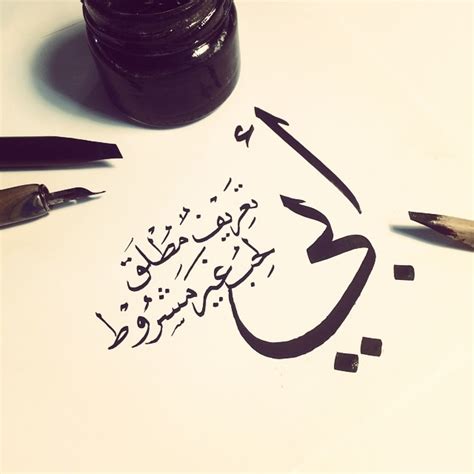 أبي
تعريف مُطْلَق
لحب غير مشروط